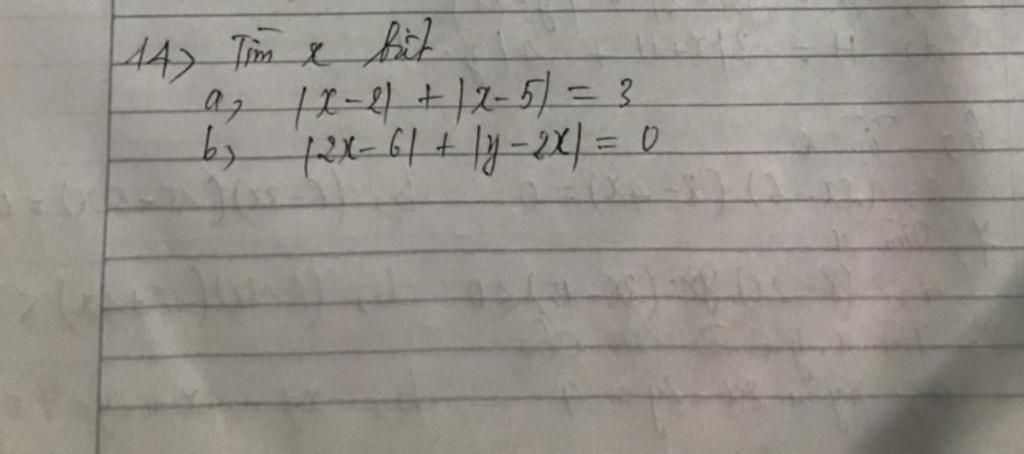 14) Tìm x biết
a, |x-2| + |x-5| = 3
b, |2x-6| + |y-2x| = 0